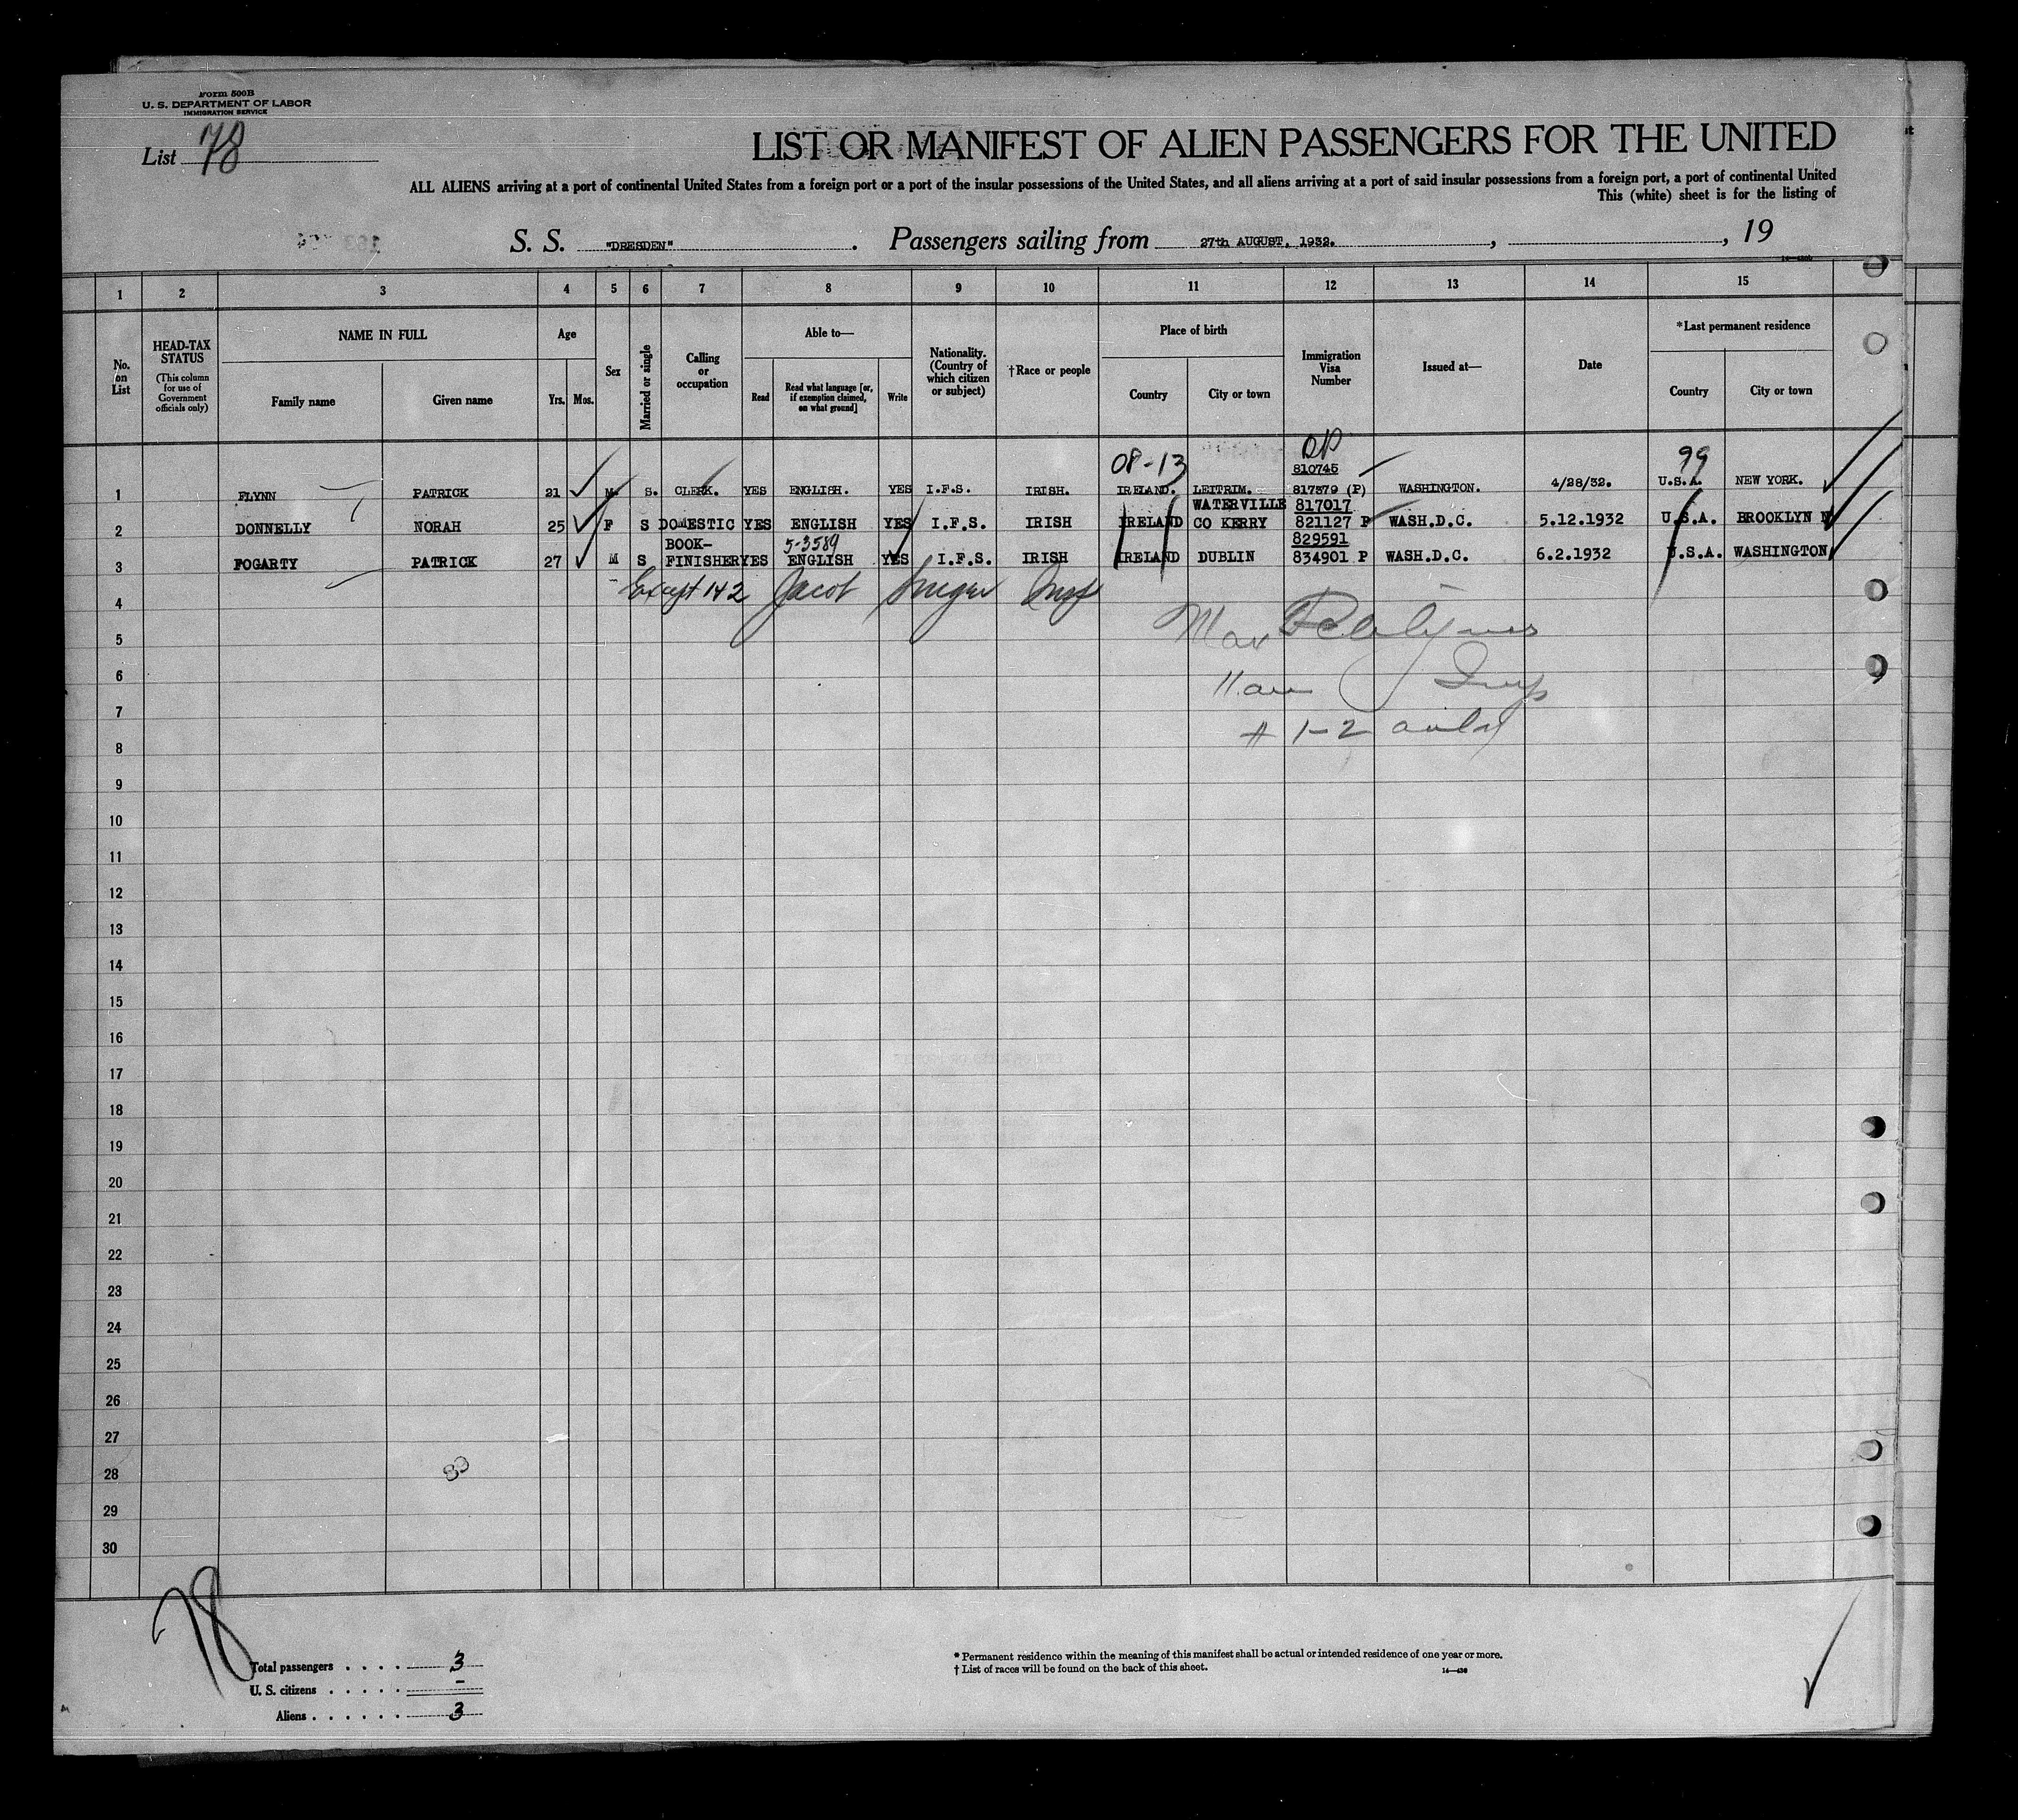 Form 500B
U. S. DEPARTMENT OF LABOR
IMMIGRATION SERVICE
List 78
LIST OR MANIFEST OF ALIEN PASSENGERS FOR THE UNITED
ALL ALIENS arriving at a port of continental United States from a foreign port or a port of the insular possessions of the United States, and all aliens arriving at a port of said insular possessions from a foreign port, a port of continental United
This (white) sheet is for the listing of
S. S. "DRESDEN" . Passengers sailing from 27th AUGUST, 1932. , , 19
1 2 3 4 5 6 7 8 9 10 11 12 13 14 15
No. on List
HEAD-TAX STATUS
(This column for use of Government officials only)
NAME IN FULL
Family name Given name
Age
Yrs. Mos.
Sex
Married or single
Calling or occupation
Able to—
Read Read what language [or, if exemption claimed, on what ground] Write
Nationality. (Country of which citizen or subject)
†Race or people
Place of birth
Country City or town
Immigration Visa Number
Issued at—
Date
*Last permanent residence
Country City or town
08-13 99
810745
1 FLYNN PATRICK 21 M. S. CLERK. YES ENGLISH. YES I.F.S. IRISH. IRELAND. LEITRIM. 817379 (P) WASHINGTON. 4/28/32. U.S.A. NEW YORK.
WATERVILLE 817017
2 DONNELLY NORAH 25 F S DOMESTIC YES ENGLISH YES I.F.S. IRISH IRELAND CO KERRY 821127 P WASH.D.C. 5.12.1932 U.S.A. BROOKLYN N
BOOK- 5-3589 829591
3 FOGARTY PATRICK 27 M S FINISHER YES ENGLISH YES I.F.S. IRISH IRELAND DUBLIN 834901 P WASH.D.C. 6.2.1932 U.S.A. WASHINGTON
Except 1+2 Jacob Insp
4
Max
5
6
7
# 1-2
8
9
10
11
12
13
14
15
16
17
18
19
20
21
22
23
24
25
26
27
28
29
30
78
Total passengers . . . . 3
U. S. citizens . . . . . –
Aliens . . . . . . 3
* Permanent residence within the meaning of this manifest shall be actual or intended residence of one year or more.
† List of races will be found on the back of this sheet.